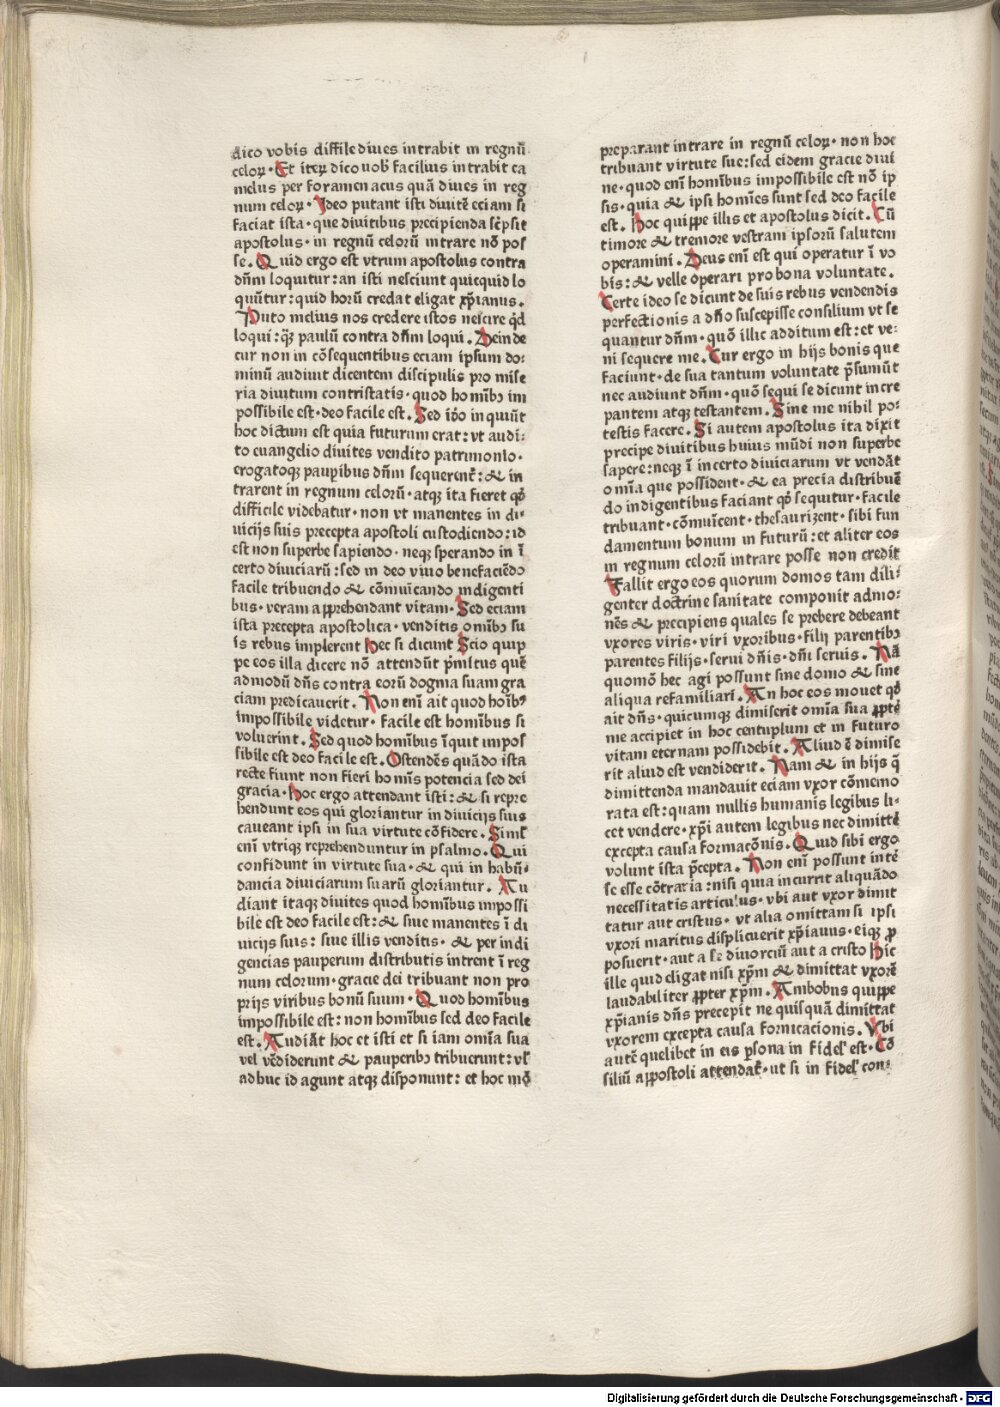 dico vobis diffile diues intrabit in regnū
celoꝝ. Et iteꝝ dico uob̄ facilius intrabit ca
melus per foramen acus quā diues in reg
num celoꝝ. Ideo putant isti diuitē eciam si
faciat ista. que diuitibus precipienda sc̄psit
apostolus. in regnū celorū intrare nō pos
se. Quid ergo est vtrum apostolus contra
dn̄m loquitur: an isti nesciunt quicquid lo
quūtur: quid horū credat eligat xp̄ianus.
Puto melius nos credere istos nescire qd̄
loqui: qꝫ paulū contra dn̄m loqui. Deinde
cur non in cōsequentibus eciam ipsum do:
minū audiuit dicentem discipulis pro mise
ria diuitum contristatis. quod hominibꝫ im
possibile est. deo facile est. Sed idēo inquiūt
hoc dictum est quia futurum erat: vt audi:
to euangelio diuites vendito patrimonio.
erogatoqꝫ pauꝑibus dn̄m sequerent̄: & in
trarent in regnum celorū. atqꝫ ita fieret qd̄
difficile videbatur. non vt manentes in di:
uicijs suis precepta apostoli custodiendo: id
est non superbe sapiendo. neqꝫ sperando in ī
certo diuiciarū: sed in deo viuo benefaciēdo
facile tribuendo & cōmuīcando indigenti
bus. veram apprehendant vitam. Sed eciam
ista precepta apostolica. venditis omībꝫ su
is rebus implerent hec si dicunt Scio quip
pe eos illa dicere nō attendūt p̄mitus quē
admodū dn̄s contra eorū dogma suam gra
ciam predicauerit. Non enī ait quod hoībꝫ
impossibile videtur. facile est homībus si
voluerint. Sed quod homībus īquit impos
sibile est deo facile est. Ostendēs quādo ista
recte fiunt non fieri homīs potencia sed dei
gracia. hoc ergo attendant isti: & si repre
hendunt eos qui gloriantur in diuicijs suis
caueant ipsi in sua virtute cōfidere. Siml̄
enī vtriqꝫ reprehenduntur in psalmo. Qui
confidunt in virtute sua. & qui in habū:
dancia diuiciarum suarū gloriantur. Au
diant itaqꝫ diuites quod homībus impossi
bile est deo facile est: & siue manentes ī di
uicijs suis: siue illis venditis. & per indi
gencias pauperum distributis intrent ī reg
num celorum. gracie dei tribuant non pro
prijs viribus bonū suum. Quod homībus
impossibile est: non homībus sed deo facile
est. Audiāt hoc et isti et si iam omīa sua
vel vēdiderunt & pauperibꝫ tribuerunt: vl̄
adhuc id agunt atqꝫ disponunt: et hoc mō
preparant intrare in regnū celoꝝ. non hoc
tribuant virtute sue: sed eidem gracie diui
ne. quod enī homībus impossibile est nō ip
sis. quia & ipsi homīes sunt sed deo facile
est. hoc quippe illis et apostolus dicit. Cū
timore & tremore vestram ipsorū salutem
operamini. Deus enī est qui operatur ī vo
bis: & velle operari pro bona voluntate.
Certe ideo se dicunt de suis rebus vendendis
perfectionis a dn̄o suscepisse consilium vt se
quantur dn̄m. quō illic additum est: et ve:
ni sequere me. Cur ergo in hijs bonis que
faciunt. de sua tantum voluntate p̄sumūt
nec audiunt dn̄m. quō sequi se dicunt incre
pantem atqꝫ testantem. Sine me nihil po:
testis facere. Si autem apostolus ita dixit
precipe diuitibus huius mūdi non superbe
sapere: neqꝫ ī incerto diuiciarum vt vendāt
omīa que possident. & ea precia distribuē
do indigentibus faciant qd̄ sequitur. facile
tribuant. cōmuīcent. thesaurizent. sibi fun
damentum bonum in futurū: et aliter eos
in regnum celorū intrare posse non credit
Fallit ergo eos quorum domos tam dili:
genter doctrine sanitate componit admo:
nēs & precipiens quales se prebere debeant
vxores viris. viri vxoribus. filij parentibꝫ
parentes filijs. serui dn̄is. dn̄i seruis. Nā
quomō hec agi possunt sine domo & sine
aliqua refamiliari. An hoc eos mouet qd̄
ait dn̄s. quicumqꝫ dimiserit omīa sua ꝓpte
me accipiet in hoc centuplum et in futuro
vitam eternam possidebit. Aliud ē dimise
rit aliud est vendiderit. Nam & in hijs q̄
dimittenda mandauit eciam vxor cōmemo
rata est: quam nullis humanis legibus li:
cet vendere. xp̄i autem legibus nec dimittē
excepta causa formacōnis. Quid sibi ergo
volunt ista p̄cepta. Non enī possunt inté
se esse cōtraria: nisi quia incurrit aliquādo
necessitatis articulus. vbi aut vxor dimit
tatur aut cristus. vt alia omittam si ipsi
vxori maritus displicuerit xp̄iauus. eiqꝫ ꝓ
posuerit. aut a se diuorciū aut a cristo Hic
ille quid eligat nisi xp̄m & dimittat vxorē
laudabiliter ꝓpter xp̄m. Ambobus quippe
xp̄ianis dn̄s precepit ne quisquā dimittat
vxorem excepta causa fornicacionis. Vbi
autē quelibet in eis ꝑsona in fidel̄ est. Cō
siliū appostoli attendat̄. ut si in fidel̄ con:
Digitalisierung gefördert durch die Deutsche Forschungsgemeinschaft - DFG